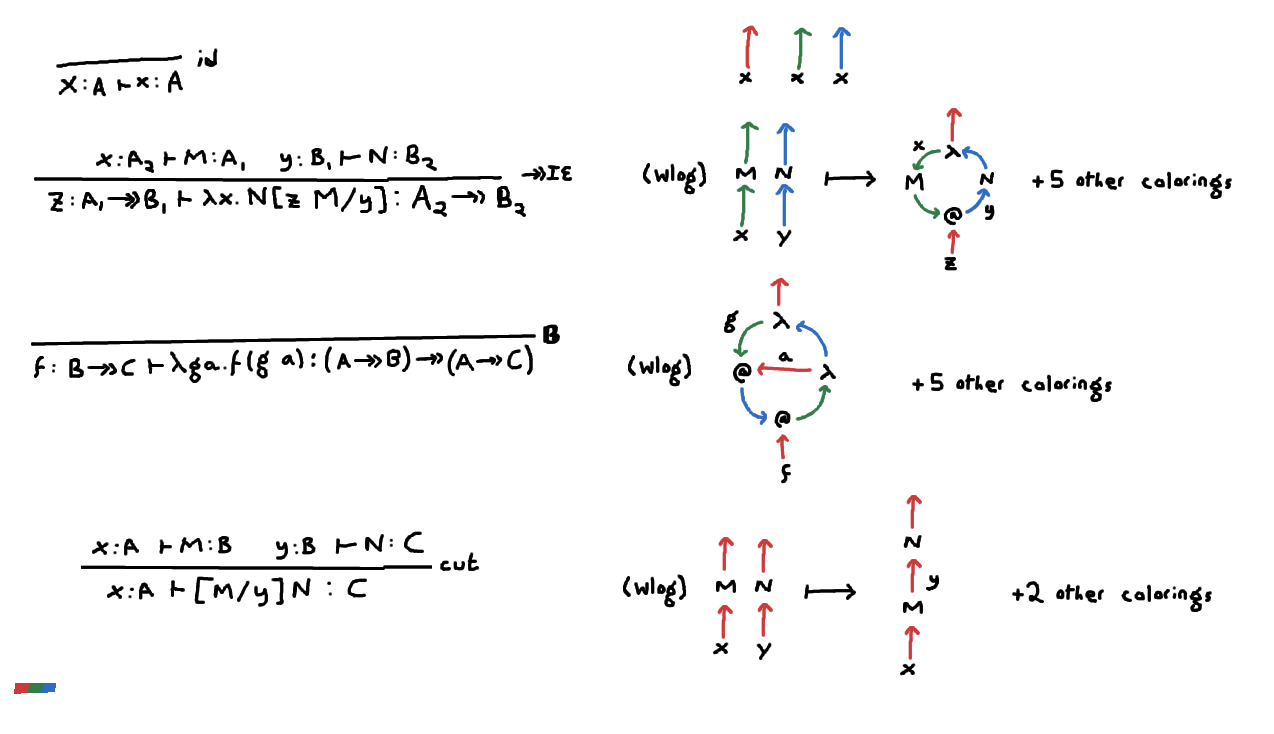 id
x:A ⊢ x:A
x x x
x:A₂ ⊢ M:A₁ y:B₁ ⊢ N:B₂
↠IE
z:A₁↠B₁ ⊢ λx.N[z M/y]:A₂↠B₂
(wlog) M N ↦ x λ M N @ y z + 5 other colorings
x y
B
f:B↠C ⊢ λga.f(g a):(A↠B)↠(A↠C)
(wlog) g λ @ a λ @ f + 5 other colorings
x:A ⊢ M:B y:B ⊢ N:C
cut
x:A ⊢ [M/y]N : C
(wlog) M N ↦ N y M x +2 other colorings
x y